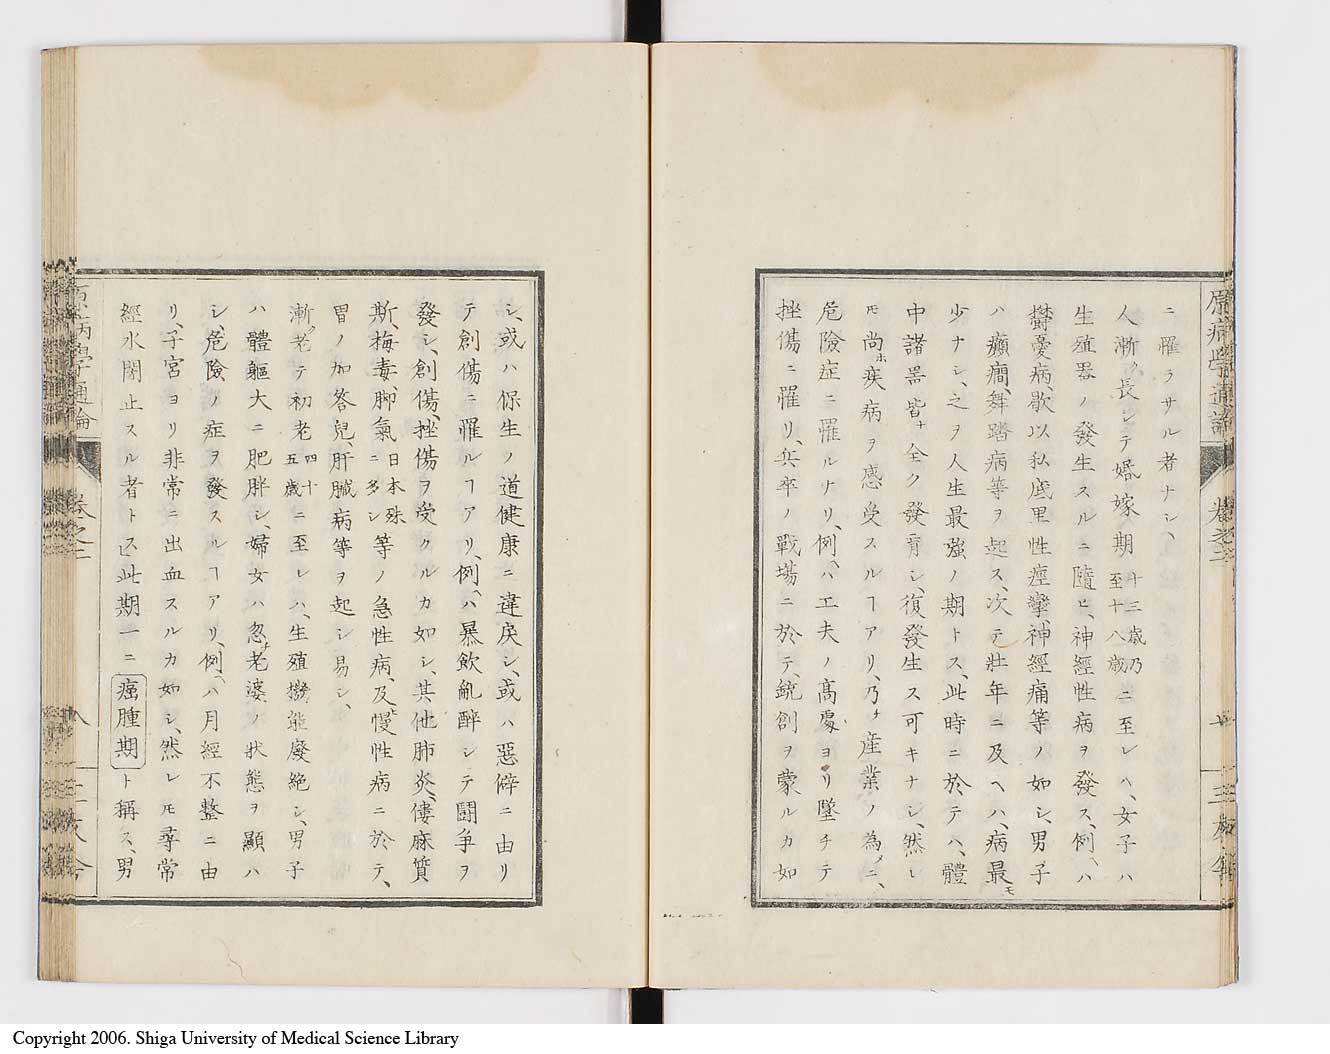 原病學通論
卷之二
三友舎
ニ罹ラサル者ナシ、
人漸ク長シテ婚嫁期十三歳乃至十八歳ニ至レハ、女子ハ
生殖器ノ發生スルニ隨ヒ、神經性病ヲ發ス、例ヘハ
欝憂病、歇以私底里性痙攣、神經痛等ノ如シ、男子
ハ癲癇、舞踏病等ヲ起ス、次テ壯年ニ及ヘハ、病最モ
少ナシ、之ヲ人生最強ノ期トス、此時ニ於テハ、體
中諸噐皆ナ全ク發育シ、復發生ス可キナシ、然レ
モ尚ホ疾病ヲ感受スルヿアリ、乃チ産業ノ為メニ、
危險症ニ罹ルナリ、例ヘハ工夫ノ髙處ヨリ墜チテ
挫傷ニ罹リ、兵卒ノ戰場ニ於テ、銃創ヲ蒙ルカ如
シ、或ハ保生ノ道健康ニ違戾シ、或ハ惡僻ニ由リ
テ創傷ニ罹ルヿアリ、例ヘハ暴飲亂醉シテ鬪争ヲ
發シ、創傷、挫傷ヲ受クルカ如シ、其他肺炎、僂麻質
斯、梅毒、脚氣日本殊ニ多シ等ノ急性病、及ヒ慢性病ニ於テ、
胃ノ加答兒、肝臓病等ヲ起シ易シ、
漸ク老テ初老四十五歳ニ至レハ、生殖機能廢絶シ、男子
ハ體軀大ニ肥胖シ、婦女ハ忽チ老婆ノ狀態ヲ顯ハ
シ、危險ノ症ヲ發スルヿアリ、例ヘハ月經不整ニ由
リ、子宮ヨリ非常ニ出血スルカ如シ、然レモ尋常
經水閉止スル者トス、此期一ニ癌腫期ト稱ス、男
原病學通論
卷之二
八
三友舎
Copyright 2006. Shiga University of Medical Science Library